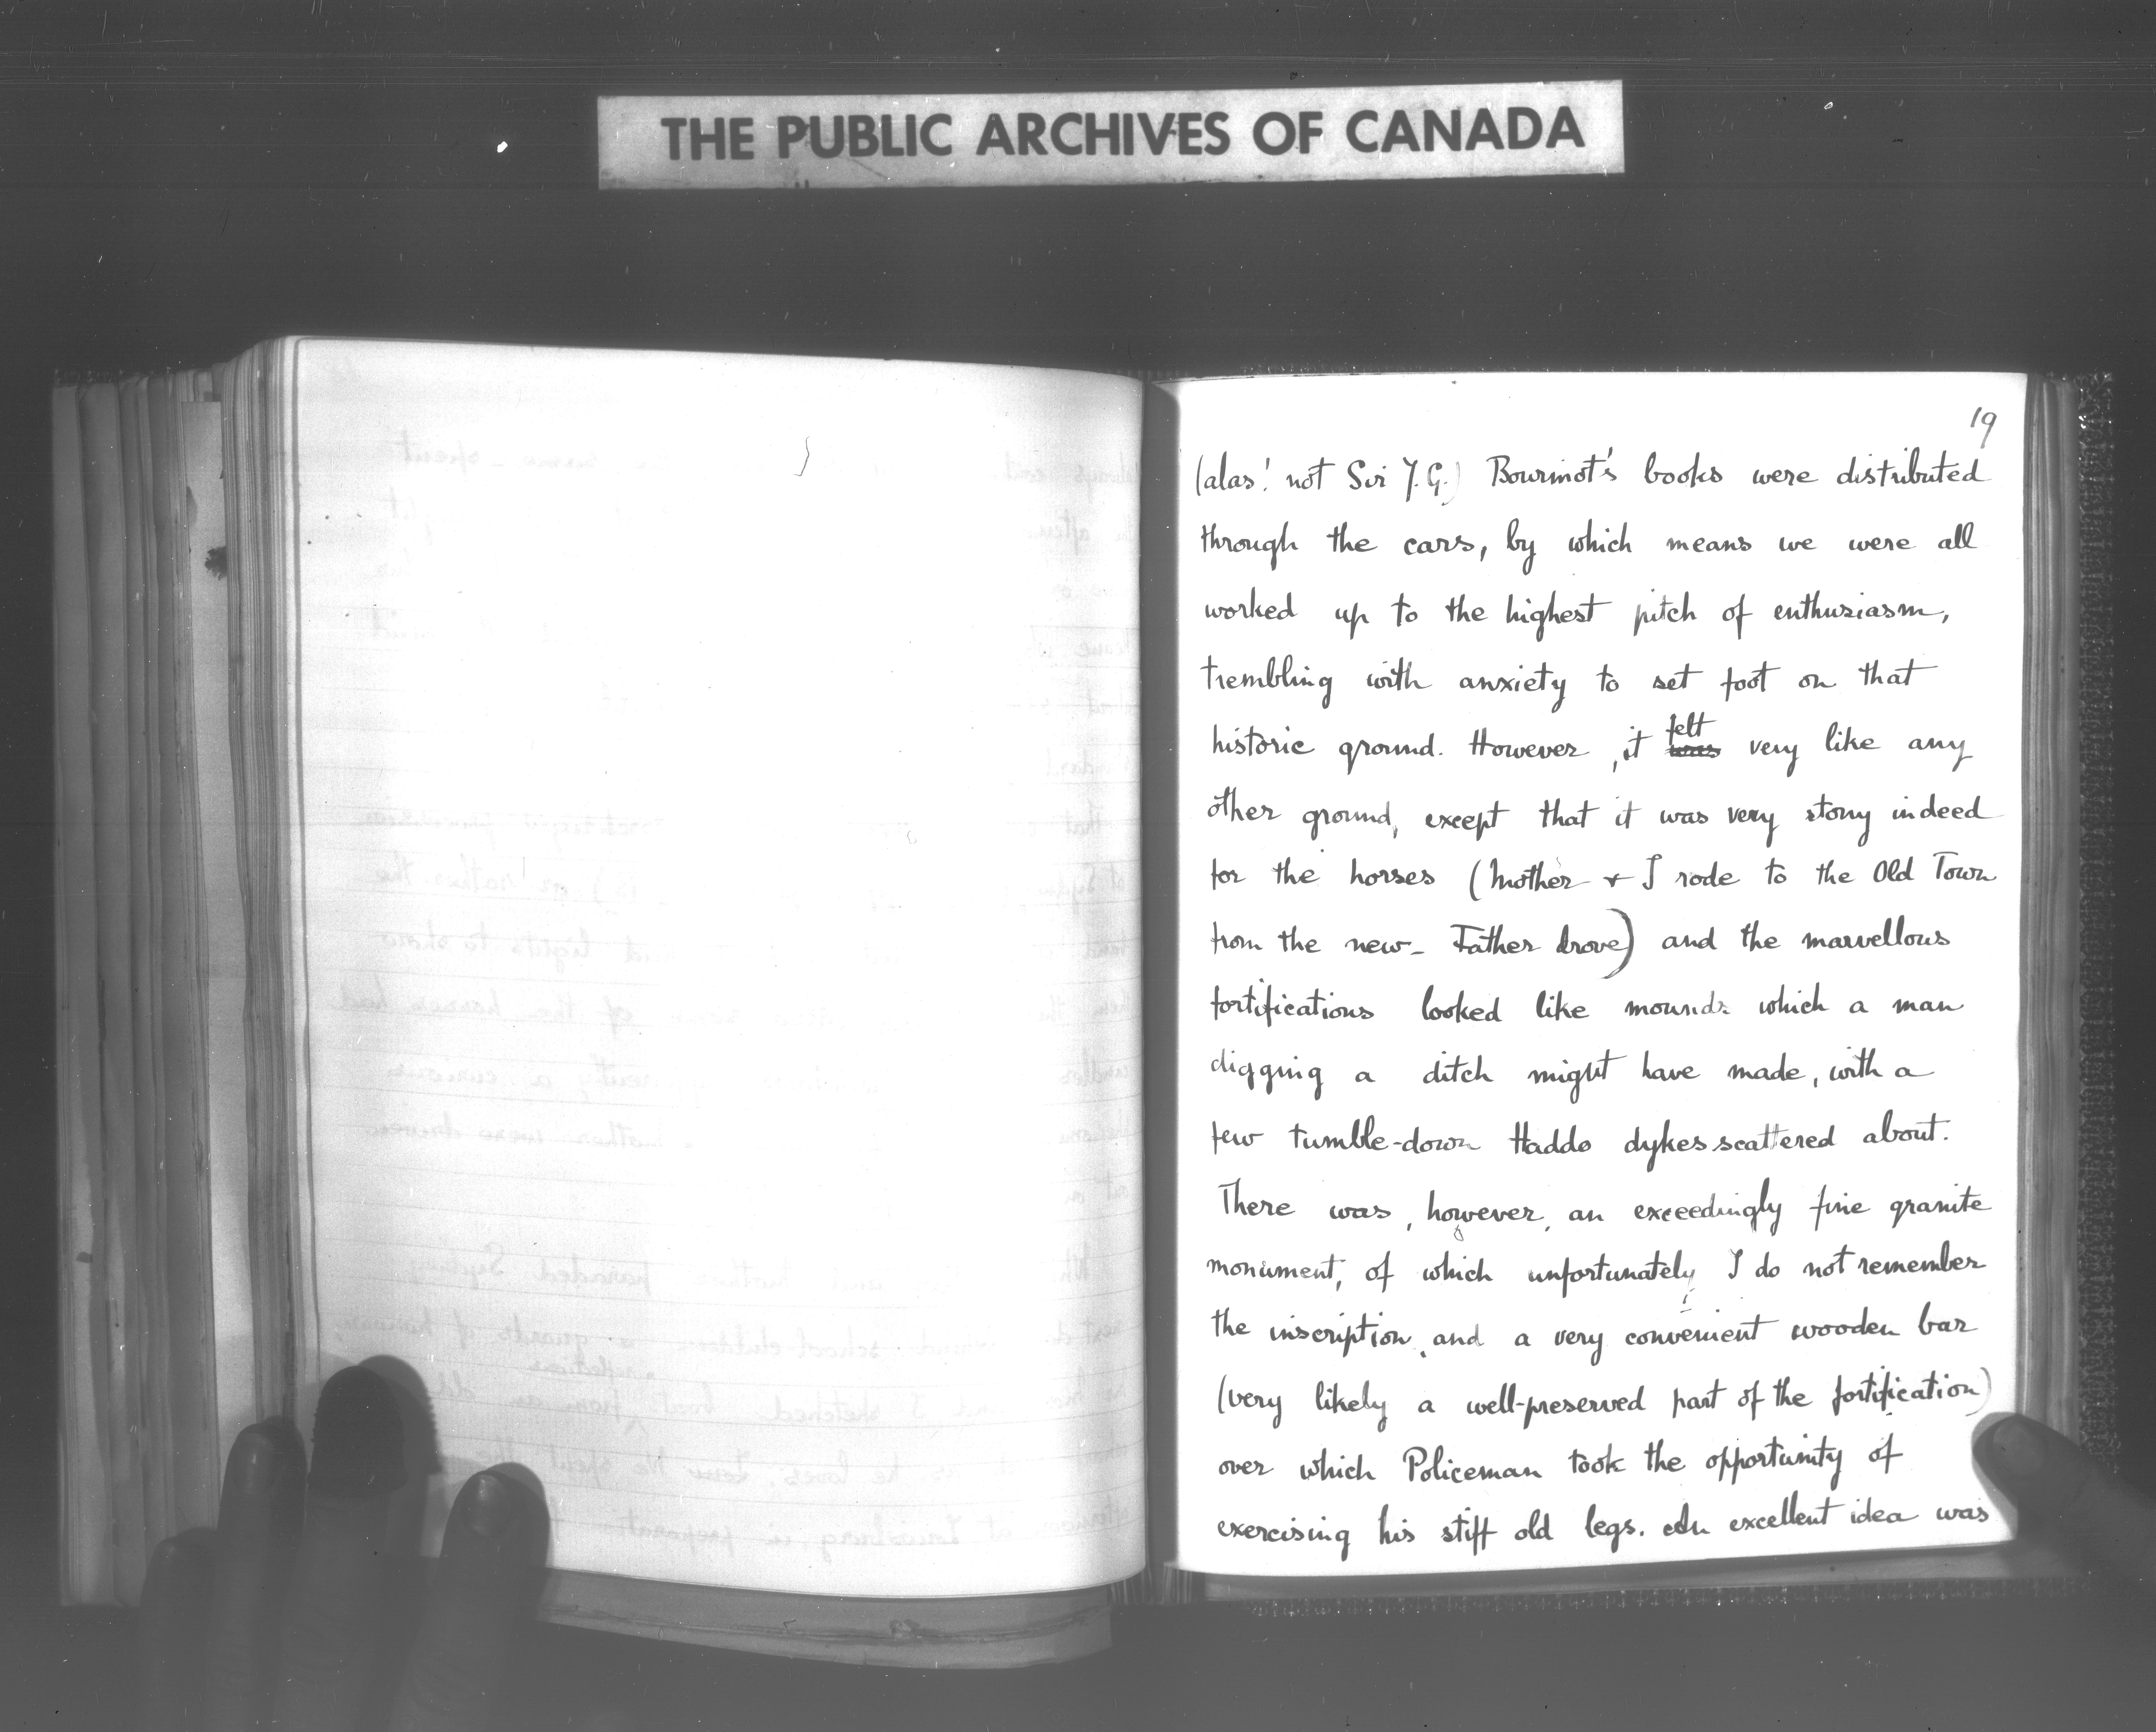 THE PUBLIC ARCHIVES OF CANADA
19
(alas! not Sir J.G.) Bourinot's books were distributed
through the cars, by which means we were all
worked up to the highest pitch of enthusiasm,
trembling with anxiety to set foot on that
historic ground. However, it felt was very like any
other ground, except that it was very stony indeed
for the horses (Mother & I rode to the Old Town
from the new - Father drove) and the marvellous
fortifications looked like mounds which a man
digging a ditch might have made, with a
few tumble-down Haddo dykes scattered about.
There was, however, an exceedingly fine granite
monument, of which unfortunately I do not remember
the inscription, and a very convenient wooden bar
(very likely a well-preserved part of the fortification)
over which Policeman took the opportunity of
exercising his stiff old legs. An excellent idea was